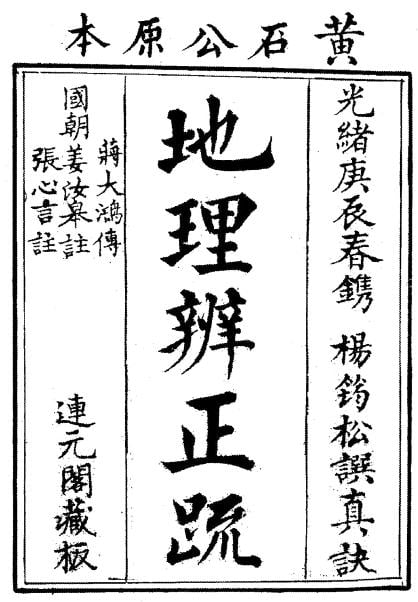 黃石公原本
光緒庚辰春鐫 楊筠松譔真訣
地理辨正疏
蔣大鴻傳
國朝姜汝皋註
張心言註
連元閣藏板